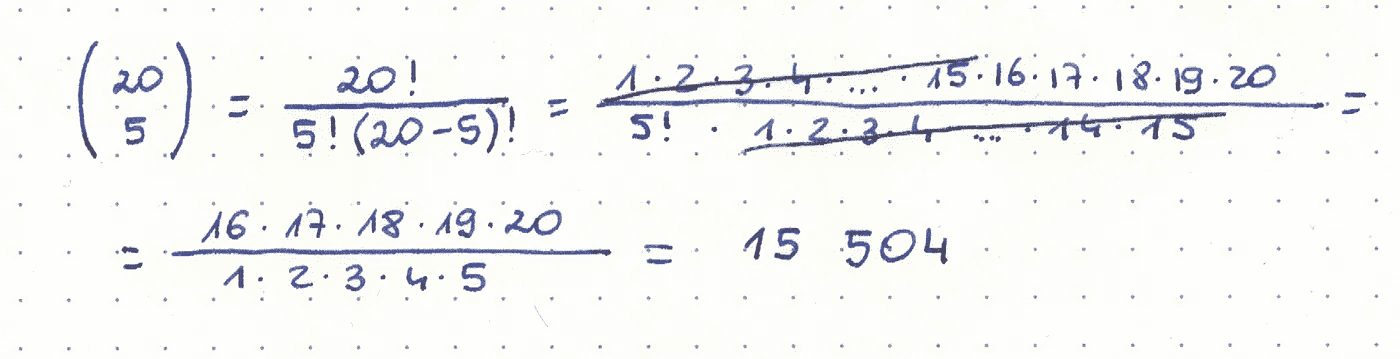 (20 5) = 20! / 5!(20-5)! = 1·2·3·4·...·15·16·17·18·19·20 / 5! · 1·2·3·4 ...·14·15 =
= 16·17·18·19·20 / 1·2·3·4·5 = 15 504